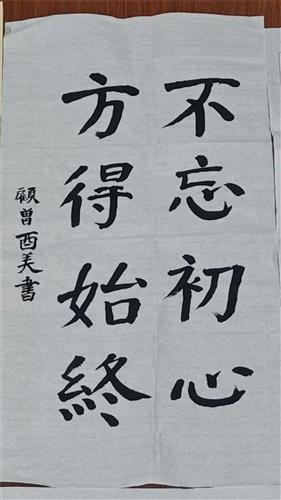 不忘初心
方得始終
顧曾酉美書